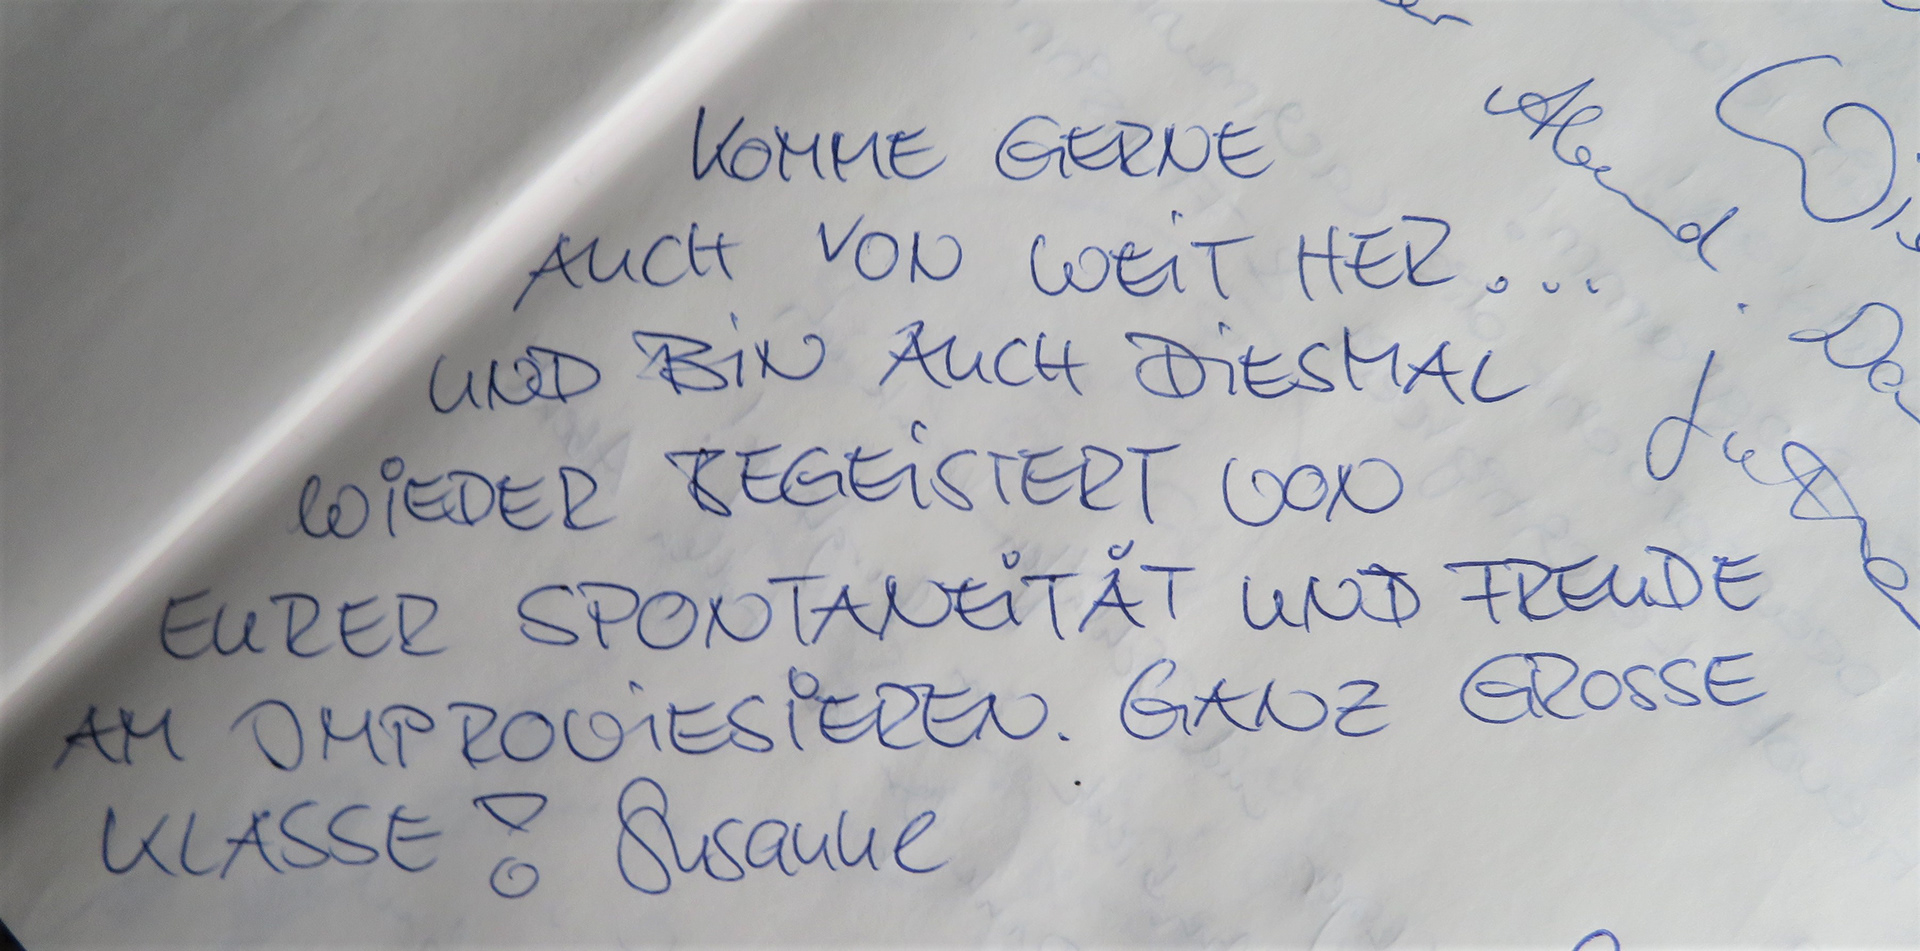 KOMME GERNE
AUCH VON WEiT HER...
UND BiN AUCH DiESMAL
WiEDER BEGEiSTERT VON
EURER SPONTANEiTÄT UND FREUDE
AM IMPROViESiEREN. GANZ GROSSE
KLASSE! Susanne
Abend